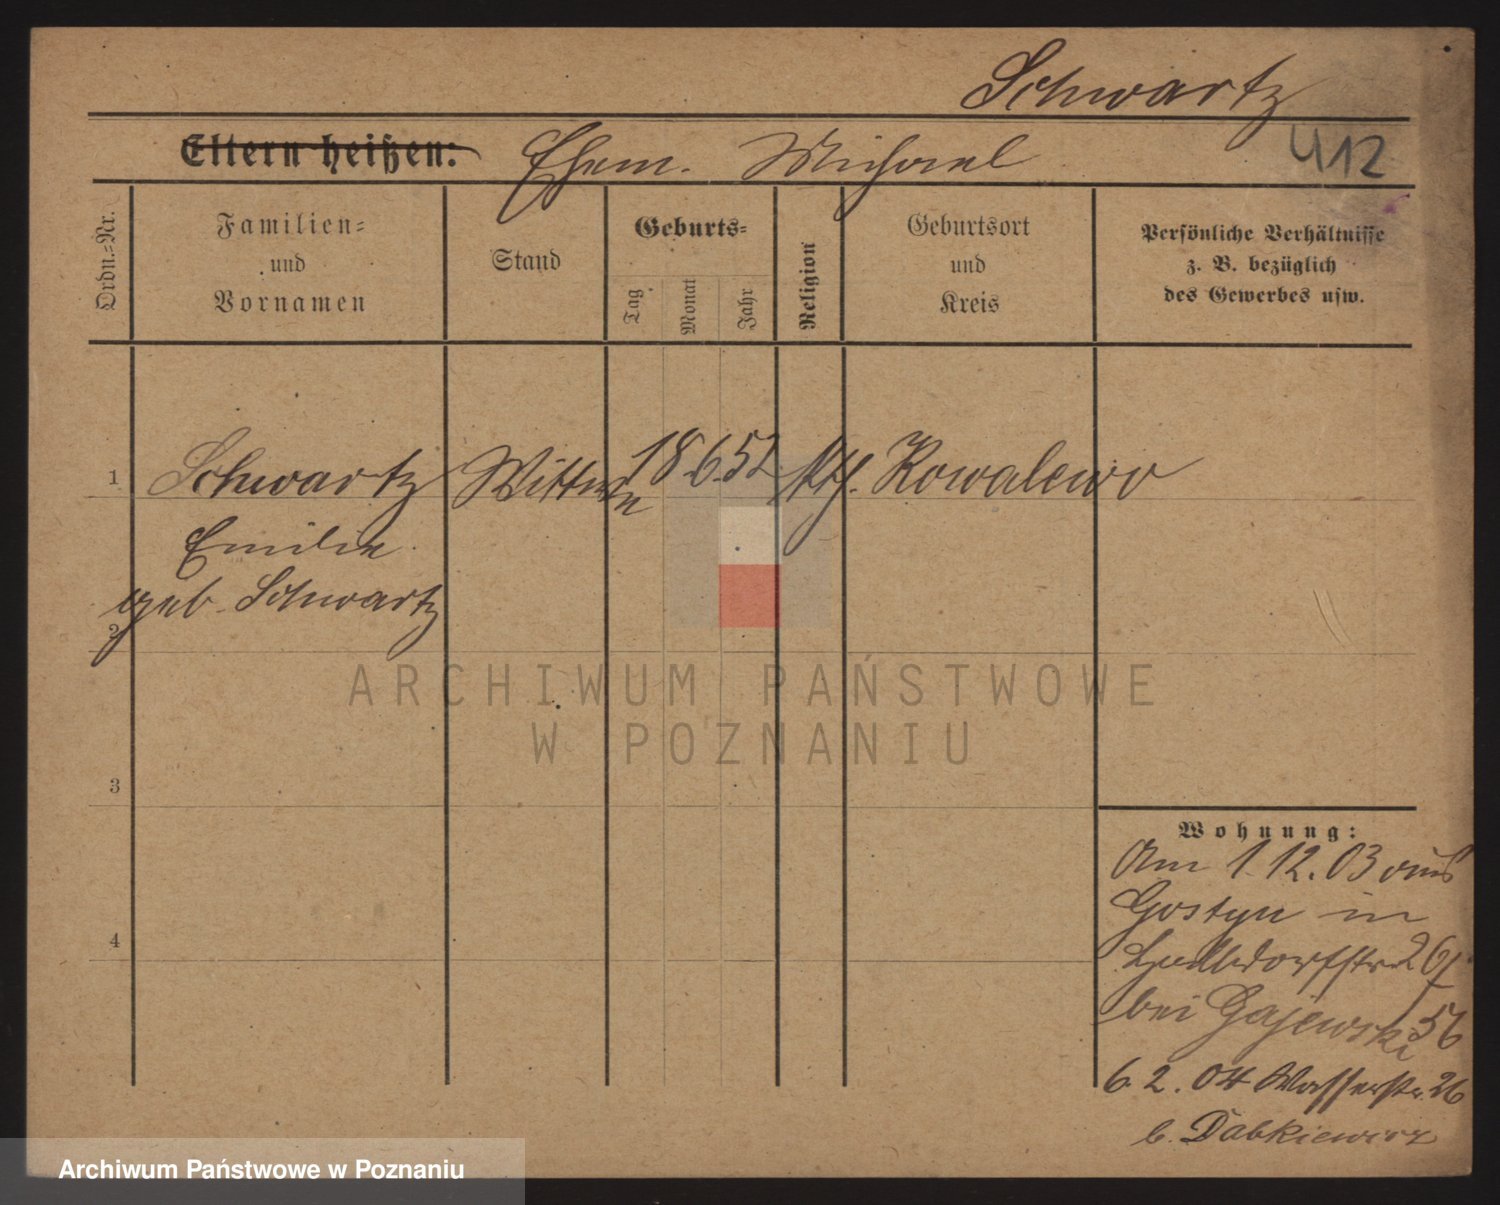 Schwartz
Eltern heißen: Ehem. Michael
412
Ordn.-Nr.
Familien-
und
Vornamen
Stand
Geburts-
Tag
Monat
Jahr
Religion
Geburtsort
und
Kreis
Persönliche Verhältnisse
z. B. bezüglich
des Gewerbes usw.
1 Schwartz Wittwe 18.6.52 kth. Kowalewo
Emilie
geb. Schwartz
2
ARCHIWUM PAŃSTWOWE
W POZNANIU
3
4
Wohnung:
Am 1.12.03 aus
Gostyn in
bei Gajewski
6.2.04 Wasserstr. 26
b. Dabkiewicz
Archiwum Państwowe w Poznaniu